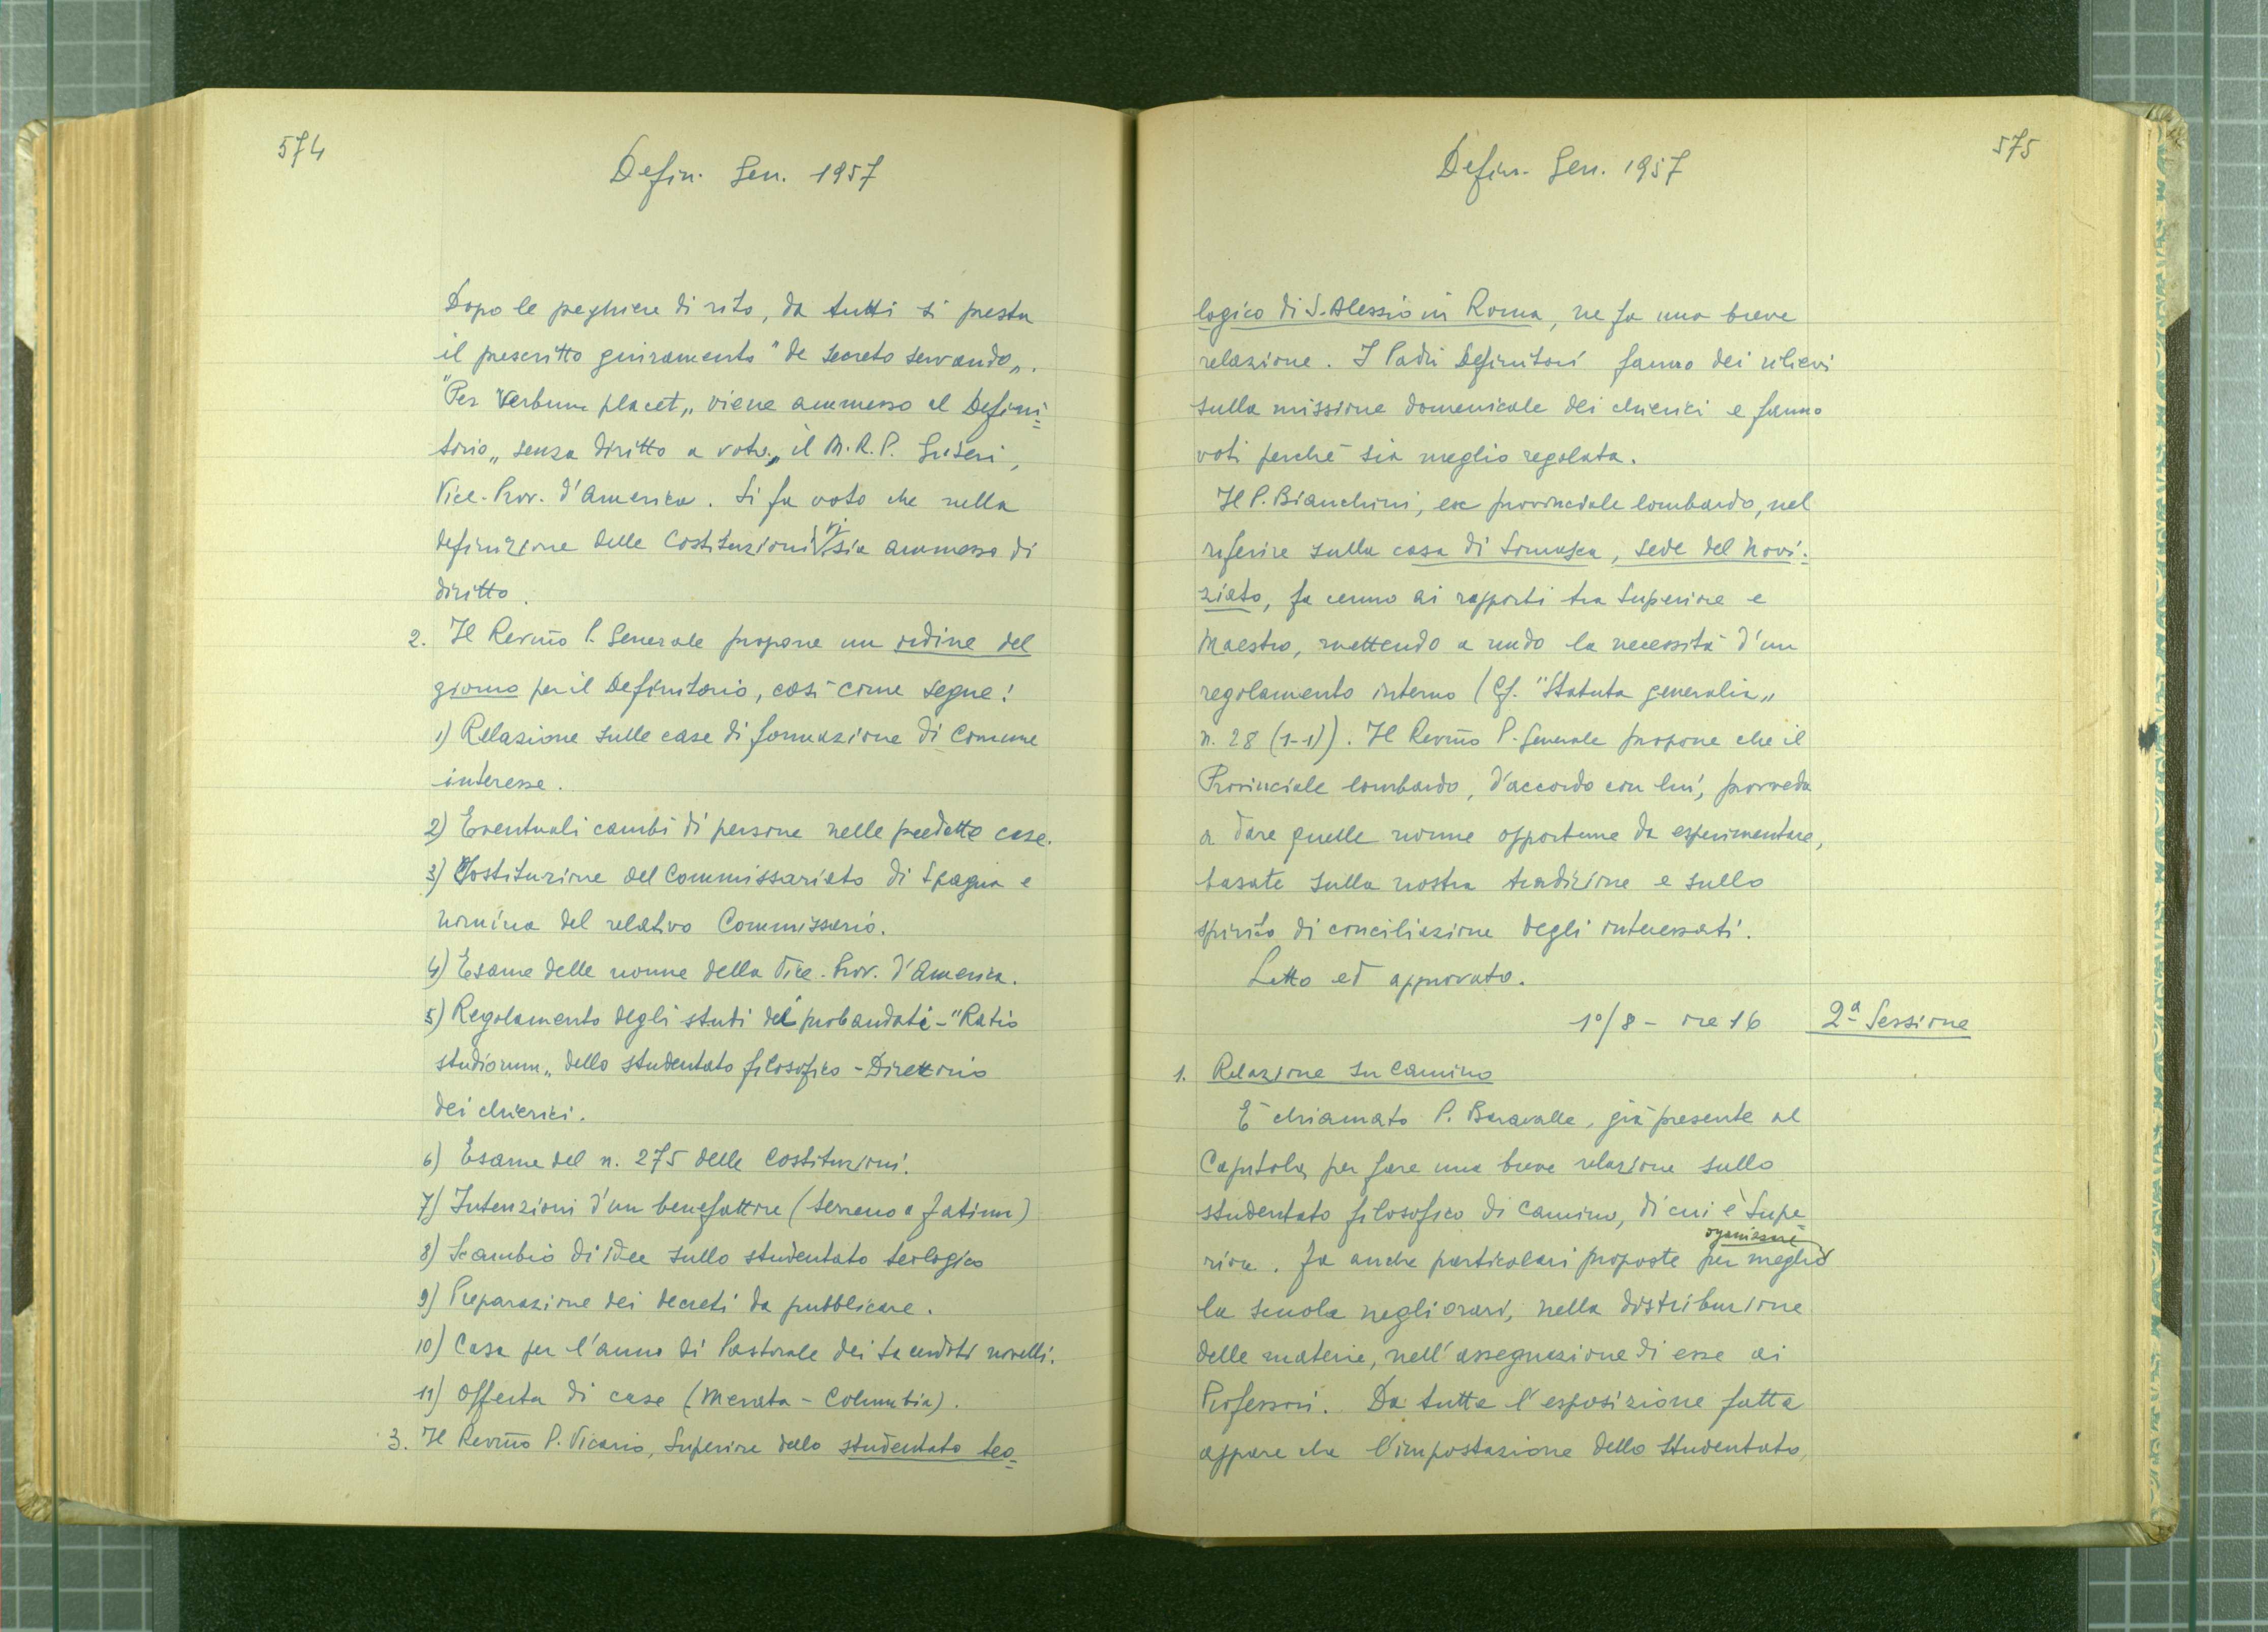 574
Defin. Gen. 1957
Dopo le peghiere di rito, da tutti si presta
il prescritto giuramento "de secreto servando„.
"Per verbum placet„ viene ammesso al Defini=
torio„ senza diritto a voto„ il M.R.P. Griseri,
Vice-Prov. d'America. Si fa voto che nella
definizione delle Costituzioni vi sia ammesso di
diritto.
2. Il Revm̃o P. Generale propone un ordine del
giorno per il Definitorio, così come segue:
1) Relazione sulle case di formazione di comune
interesse.
2) Eventuali cambi di persone nelle predette case.
3) Costituzione del Commissariato di Spagna e
nomina del relativo Commissario.
4) Esame delle norme della Vice-Prov. d'America.
5) Regolamento degli studi dei probandati - "Ratio
studiorum„ dello studentato filosofico - Direttorio
dei chierici.
6) Esame del n. 275 delle Costituzioni.
7) Intenzioni d'un benefattore (terreno a Fatima)
8) Scambio di idee sullo studentato teologico
9) Preparazione dei decreti da pubblicare.
10) Casa per l'anno di Pastorale dei sacerdoti novelli.
11) Offerta di case (Merata - Columbia).
3. Il Revm̃o P. Vicario, Superiore dello studentato teo=
575
Defin. Gen. 1957
logico di S. Alessio in Roma, ne fa una breve
relazione. I Padri Definitori fanno dei rilievi
sulla missione domenicale dei chierici e fanno
voti perché sia meglio regolata.
Il P. Bianchini, ex provinciale lombardo, nel
riferire sulla casa di Somasca, sede del novi=
ziato, fa cenno ai rapporti tra Superiore e
Maestro, mettendo a nudo la necessità d'un
regolamento interno (Cf. "Statuta generalia„
n. 28 (1-1)). Il Revm̃o P. Generale propone che il
Provinciale lombardo, d'accordo con lui, provveda
a dare quelle norme opportune da esperimentare,
basate sulla nostra tradizione e sullo
spirito di conciliazione degli interessati.
Letto ed approvato.
1º/8 - ore 16 2ª Sessione
1. Relazione su Camino
È chiamato P. Baravalle, già presente al
Capitolo, per fare una breve relazione sullo
studentato filosofico di Camino, di cui è Supe=
riore. Fa anche particolari proposte per meglio organizzare
la scuola negli orari, nella distribuzione
delle materie, nell'assegnazione di esse ai
Professori. Da tutta l'esposizione fatta
appare che l'impostazione dello studentato,